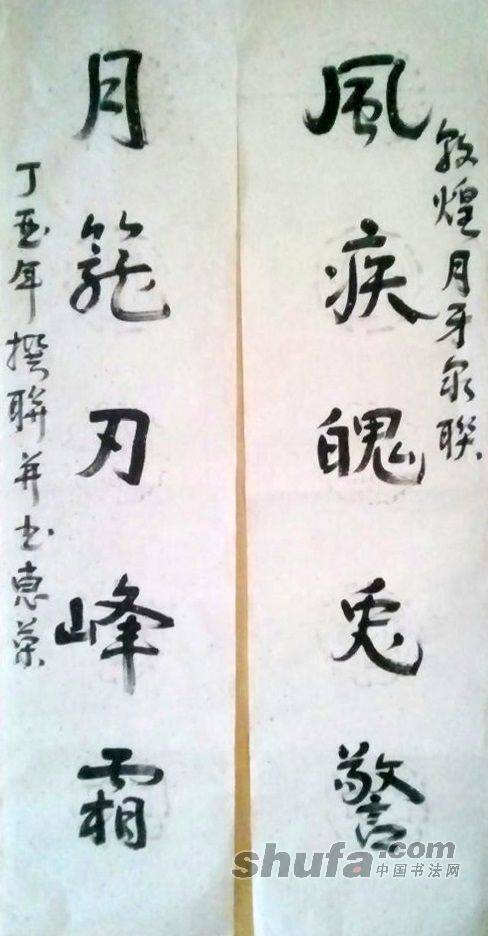 敦煌月牙泉聯
風疾魄兔警
月籠刃峰霜
丁酉年撰聯并书惠荣
shufa.com
中国书法网